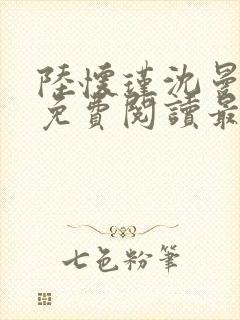 陸懷瑾沈
免費閱讀最
七色粉筆